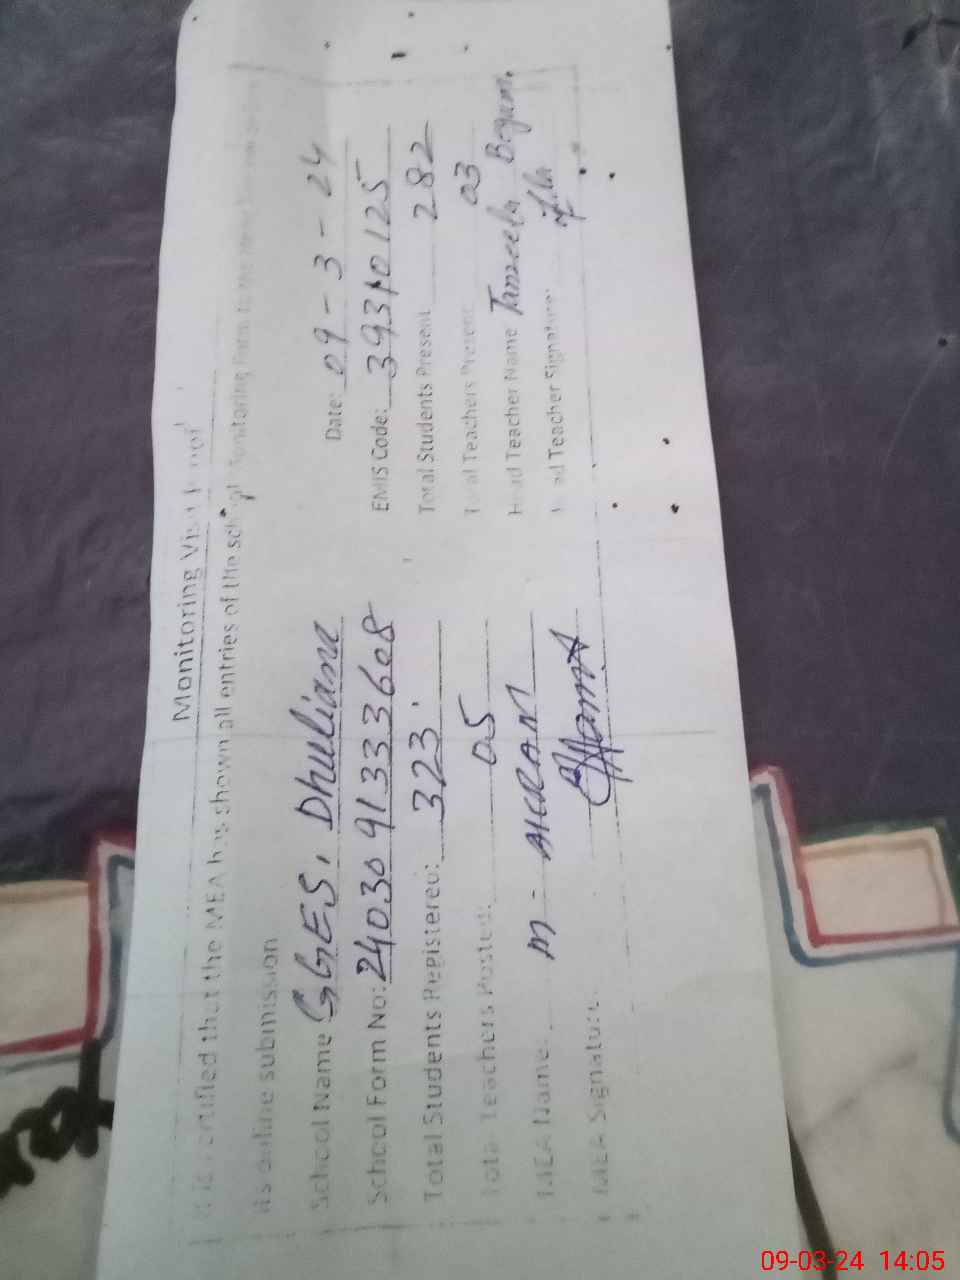 Monitoring Visit Proof
It is certified that the MEA has shown all entries of the school Monitoring Form to me
his online submission
School Name GGES, Dhuliana Date: 09-3-24
School Form No: 2403091333608 EMIS Code: 39310125
Total Students Registered: 323 Total Students Present 282
Total Teachers Posted: 05 Total Teachers Present 03
MEA Name: M-AKRAM Head Teacher Name Begum
MEA Signature: Head Teacher Signature:
09-03-24 14:05